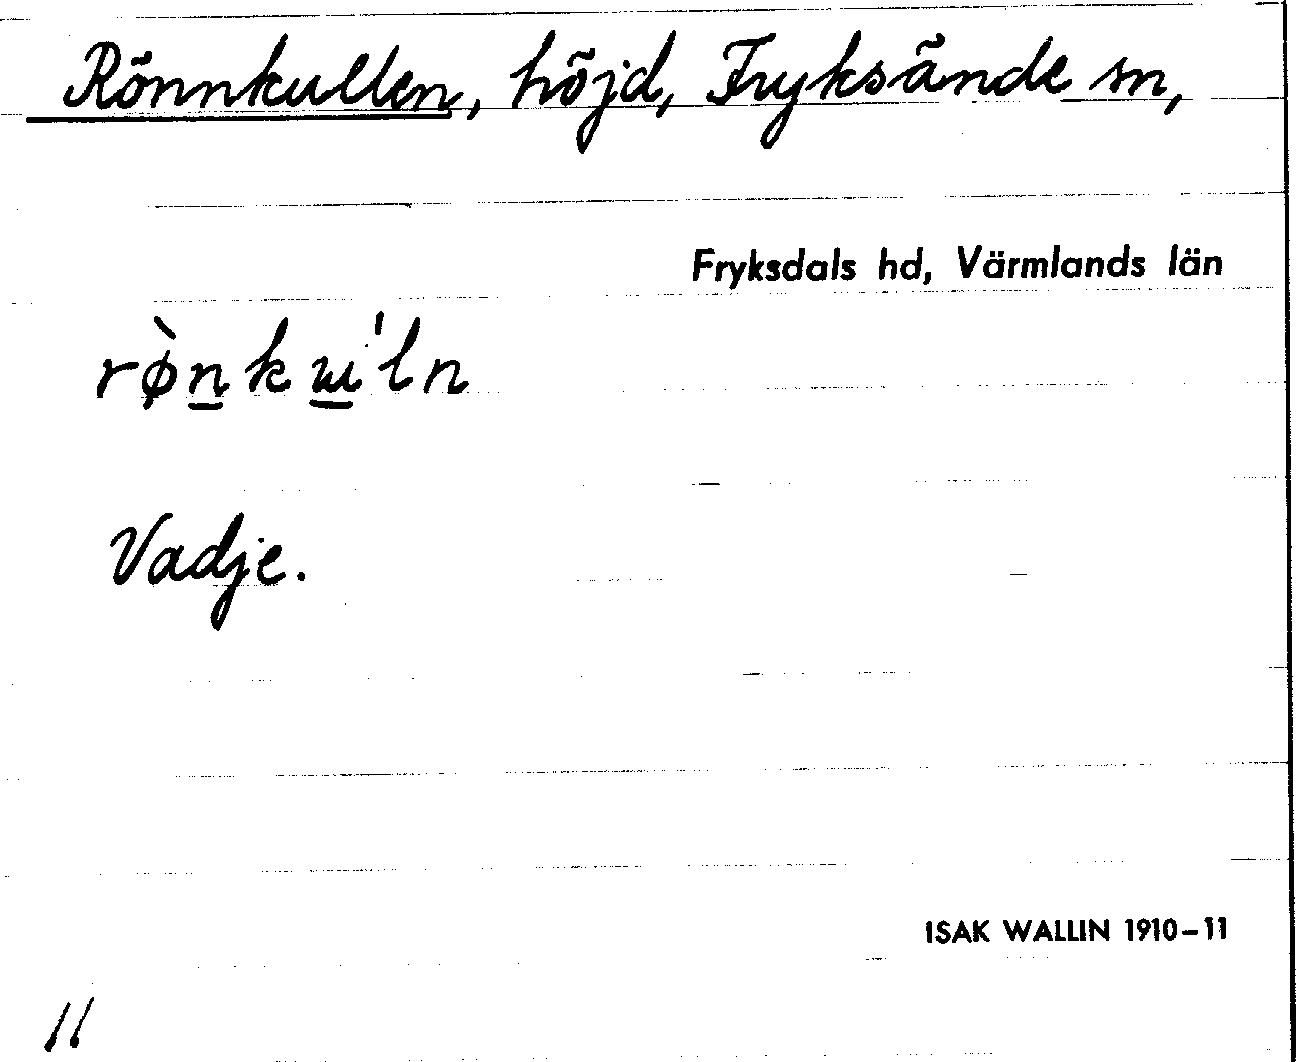 Rönnkullen, höjd, Fryksände sn,
Fryksdals hd, Värmlands län
rø̀n̲kɯ̲ˈln
Vadje.
ISAK WALLIN 1910–11
11